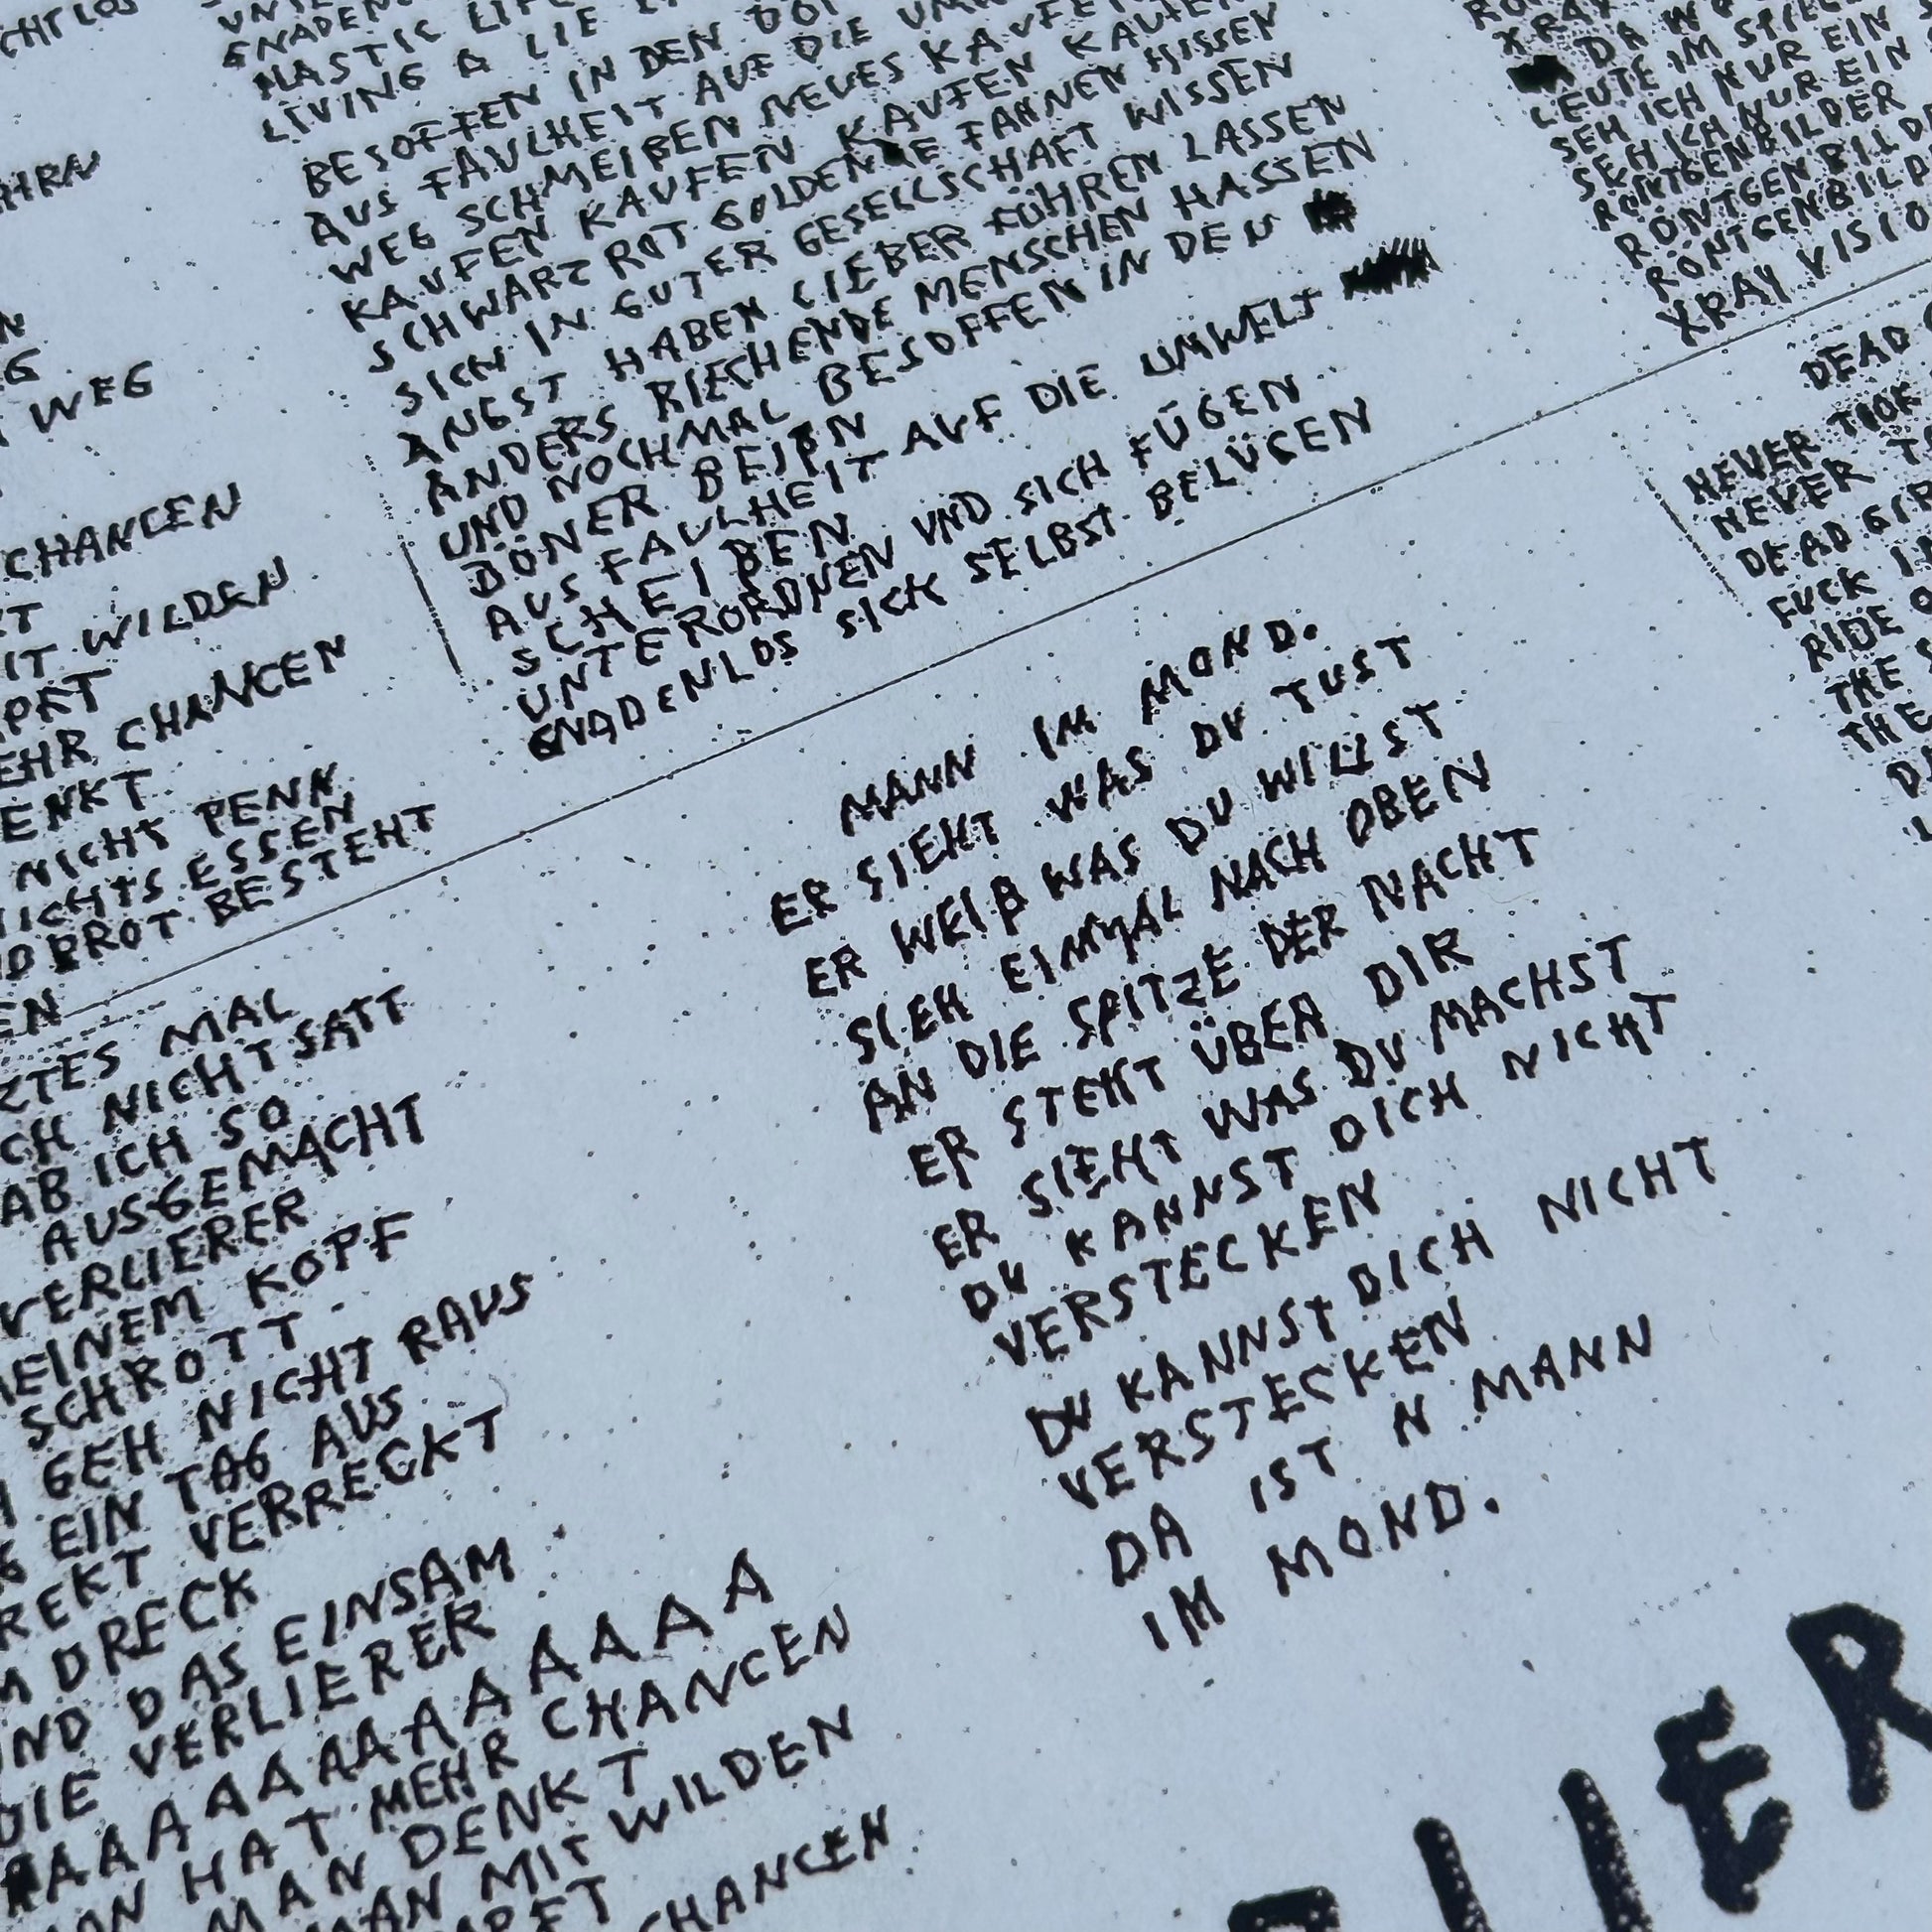 CHTLOS
HIRN
WEG
CHANCEN
IT WILDEN
EHR CHANCEN
ENKT
NICHT PENN
NICHTS ESSEN
BROT BESTEHT
EN
GNADEN
LIVING A LIE
BESOFFEN IN DEN
AUS FAULHEIT AUF DIE
WEG SCHMEIßEN NEUES KAUFEN
KAUFEN KAUFEN KAUFEN KAUFEN
SCHWARZ ROT GOLDENE FAHNEN HISSEN
SICH IN GUTER GESELLSCHAFT WISSEN
ANGST HABEN LIEBER FÜHREN LASSEN
ANDERS RIECHENDE MENSCHEN HASSEN
UND NOCHMAL BESOFFEN IN DEN
DÖNER BEIßN
AUS FAULHEIT AUF DIE UMWELT
SCHEIßEN
UNTERORDNEN UND SICH FÜGEN
GNADENLOS SICH SELBST BELÜGEN
XRAY
DA
LEUTE IM
SEH ICH NUR EIN
SEH ICH NUR EIN
RÖNTGENBILDER
RÖNTGENBILD
RÖNTGENBILD
XRAY VISIO
DEAD
NEVER
NEVER
DEAD
FUCK
RIDE
THE
THE
ZTES MAL
CH NICHT SATT
AB ICH SO
AUSGEMACHT
VERLIERER
EINEM KOPF
SCHROTT
GEH NICHT RAUS
EIN TAG AUS
REKT VERRECKT
M DRECK
UND DAS EINSAM
DIE VERLIERER
AAAAAAAAAAAAAA
HAT MEHR CHANCEN
MAN DENKT
MAN MIT WILDEN
CHANCEN
MANN IM MOND.
ER SIEHT WAS DU TUST
ER WEIß WAS DU WILLST
SIEH EINMAL NACH OBEN
AN DIE SPITZE DER NACHT
ER STEHT ÜBER DIR
ER SIEHT WAS DU MACHST
DU KANNST DICH NICHT
VERSTECKEN
DU KANNST DICH NICHT
VERSTECKEN
DA IST N MANN
IM MOND.
IER